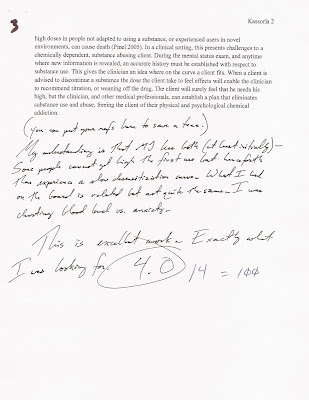 Kassorla 2
3
high doses in people not adapted to using a substance, or experienced users in novel
environments, can cause death (Pinel 2005). In a clinical setting, this presents challenges to a
chemically dependent, substance abusing client. During the mental status exam, and anytime
where new information is revealed, an accurate history must be established with respect to
substance use. This gives the clinician an idea where on the curve a client fits. When a client is
advised to discontinue a substance the dose the client take to feel effects will enable the clinician
to recommend titration, or weaning off the drug. The client will surely feel that he needs his
high, but the clinician, and other medical professionals, can establish a plan that eliminates
substance use and abuse, freeing the client of their physical and psychological chemical
addiction.
(You can put your refs here to save a tree.)
My understanding is that MJ has both (at least initially) -
Some people cannot get high the first use but henceforth
then experience a slow desensitization curve. What I had
on the board is related but not quite the same - I was
charting blood level vs. anxiety.
This is excellent work - Exactly what
I was looking for. 4.0 /4 = 100